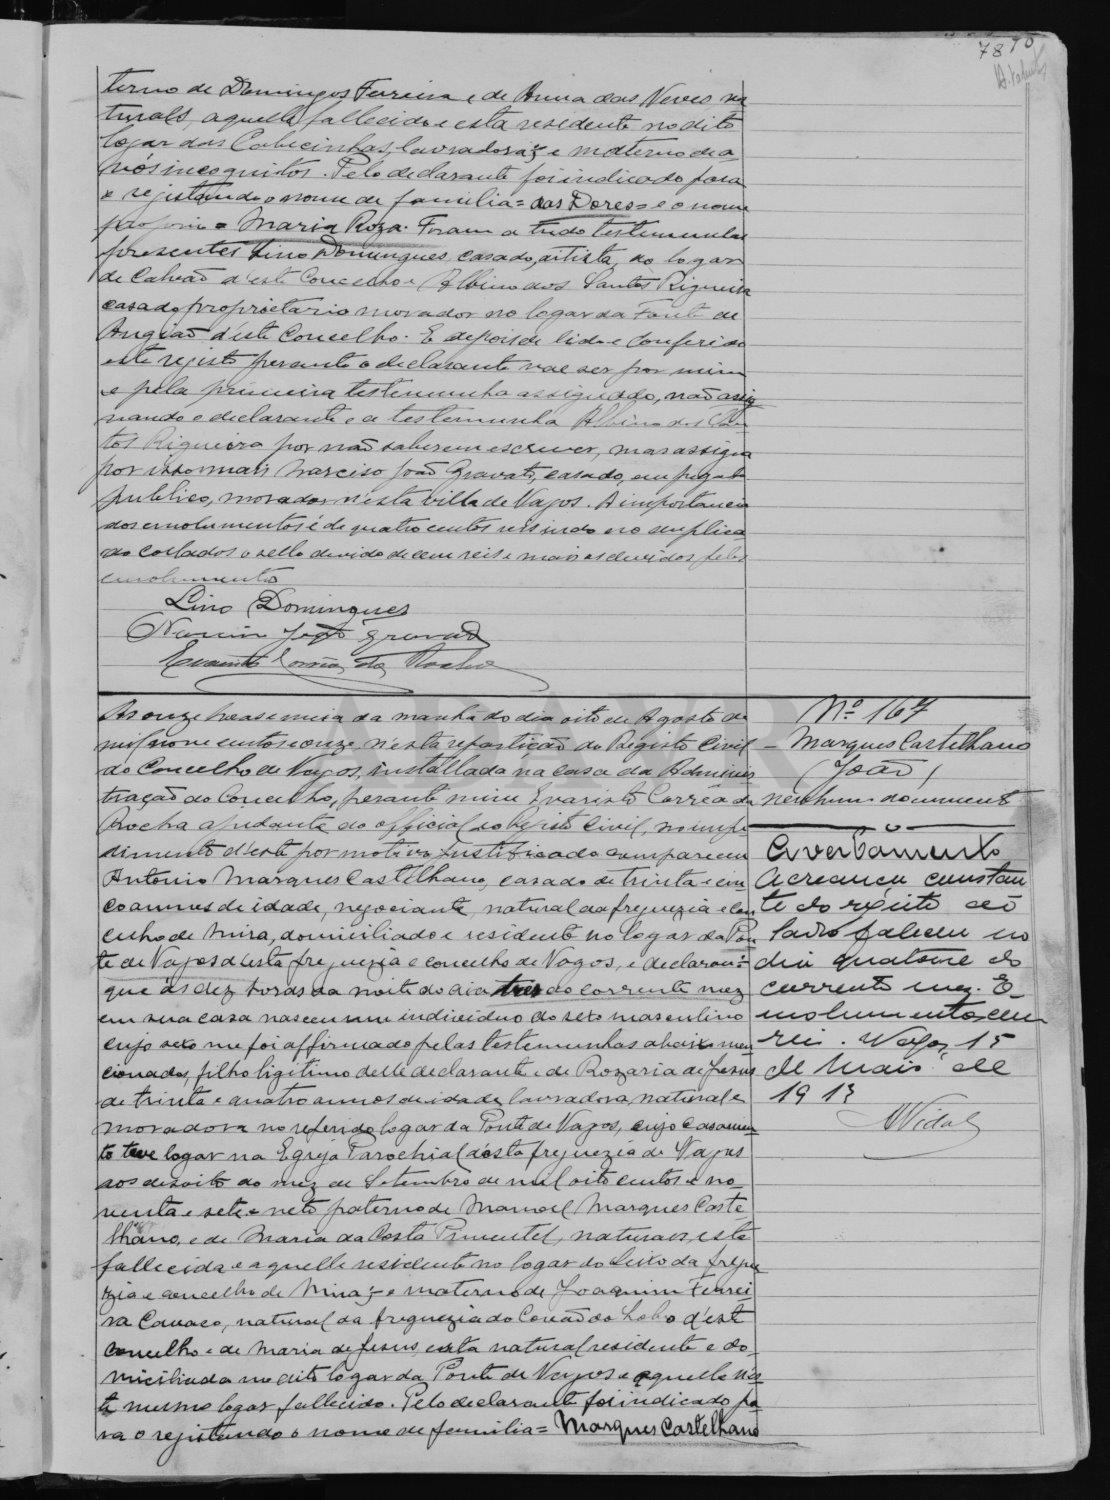 78
terno de Domingos Ferreira e de Anna das Neves na
turaes, aquelle fallecido e esta residente no dito
logar das Cabecinhas, lavradoras e materno de a
vós incognitos. Pelo declarante foi indicado para
o registando o nome de familia = das Dores = e o nome
proprio = Maria Roza. Foram a tudo testemunhas
presentes Lino Domingues, casado, artista, do logar
de Calvão d'este Concelho e Albino dos Santos Rigueira
casado proprietario morador no logar da Fonte de
Angião d'este Concelho. E depois de lido e conferido
este registo perante o declarante vae ser por mim
e pela primeira testemunha assignado, não assig
nando o declarante e a testemunha Albino dos San
tos Rigueira por não saberem escrever, mas assigna
por isso mais Narciso João Gravato, casado, empregado
publico, morador n'esta villa de Vagos. A importancia
dos emolumentos é de quatro centos reis indo no duplica
do collados o sello devido de cem reis e mais os devidos pelos
emolumentos
Lino Domingues
Narciso João Gravato
Evaristo Corrêa da Rocha
Nº 167
Marques Castelhano
(João)
nenhum documento
Ás onze horas e meia da manhã do dia oito de Agosto de
mil nove centos e onze n'esta repartição do Registo Civil
do Concelho de Vagos, installada na casa da Adminis
tração do Concelho, perante mim Evaristo Corrêa da
Rocha ajudante do official do registo civil, no impe
dimento d'este por motivo justificado compareceu
Antonio Marques Castelhano, casado de trinta e cin
co annos de idade, negociante, natural da freguezia e con
celho de Mira, domiciliado e residente no logar da Pon
te de Vagos d'esta freguezia e concelho de Vagos, e declarou:
que ás dez horas da noite do dia tres do corrente mez
em sua casa nasceu um individuo do sexo masculino
cujo sexo me foi affirmado pelas testemunhas abaixo men
cionadas, filho ligitimo delle declarante e de Rozaria de Jesus
de trinta e quatro annos de idade, lavradora, natural e
moradora no referido logar da Ponte de Vagos, cujo casamen
to teve logar na Egreja Parochial d'esta freguezia de Vagos
aos dezoito do mez de Setembro de mil oito centos e no
venta e sete e neto paterno de Manoel Marques Caste
lhano, e de Maria da Costa Pimentel, naturaes, esta
fallecida e aquelle residente no logar do Seixo da fregue
zia e concelho de Mira; e materno de Joaquim Ferrei
ra Cavaco, natural da freguezia do Covão do Lobo d'este
concelho e de Maria de Jesus, esta natural residente e do
miciliada no dito logar da Ponte de Vagos e aquelle n'es
te mesmo logar fallecido. Pelo declarante foi indicado pa
ra o registando o nome de familia = Marques Castelhano
Averbamento
A creança constan
te do registo ao
lado faleceu no
dia quatorze do
corrente mez. E
molumentos cem
reis. Vagos, 15
de Maio de
1913
AVidal